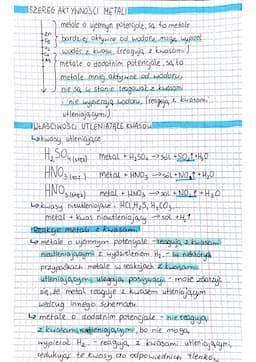 SZEREG AKTYWNOŚCI METALI
metale o ujemnym potencjale, są to metale
bardziej aktywne od wodoru, mogą wyprzeć
wodór z kwasu (reagują z kwasami)
metale o dodatnim potencjale, są to
metale mniej aktywne od wodoru,
nie są w stanie reagować z kwasami
- nie wypierają wodoru, (reagują z kwasami
utleniającymi)
WŁAŚCIWOŚCI UTLENIAJĄCE KWASÓW
↳ kwasy utleniające
H₂SO₄ (stęż) metal + H₂SO₄ → sól + SO₂↑ + H₂O
HNO₃ metal + HNO₃ → sól + NO₂↑ + H₂O
HNO₃ metal + HNO₃ → sól + NO↑ + H₂O
↳ kwasy nieutleniające - HCl, H₂S, H₂CO₃...
metal + kwas nieutleniający → sól + H₂↑
Reakcje metali z kwasami
↳ metale o ujemnym potencjale - reagują z kwasami
nieutleniającymi z wydzieleniem H₂ - w niektórych
przypadkach metale w reakcjach z kwasami
utleniającymi ulegają pasywacji - może zdarzyć
się, że metal reaguje z kwasem utleniającym
według innego schematu
↳ metale o dodatnim potencjale - nie reagują
z kwasami nieutleniającymi, bo nie mogą
wypierać H₂ - reagują z kwasami utleniającymi,
redukując te kwasy do odpowiednich tlenków